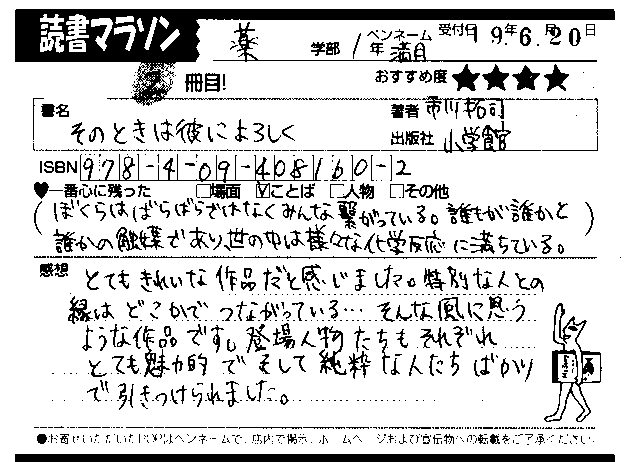 読書マラソン
薬 学部 1年 ペンネーム 満月 受付日 19年6月20日
2冊目! おすすめ度 ★★★★
書名 そのときは彼によろしく
著者 市川拓司
出版社 小学館
ISBN 978-4-09-408160-2
♥一番心に残った □場面 ☑ことば □人物 □その他
(ぼくらはばらばらではなくみんな繋がっている。誰もが誰かと
誰かの触媒であり、世の中は様々な化学反応に満ちている。)
感想 とてもきれいな作品だと感じました。特別な人との
縁はどこかでつながっている…そんな風に思う
ような作品ですし登場人物たちもそれぞれ
とても魅力的でそして純粋な人たちばかり
で引きつけられました。
●お寄せいただいたPOPはペンネームで、店内で掲示、ホームページおよび宣伝物への転載をご了承ください。